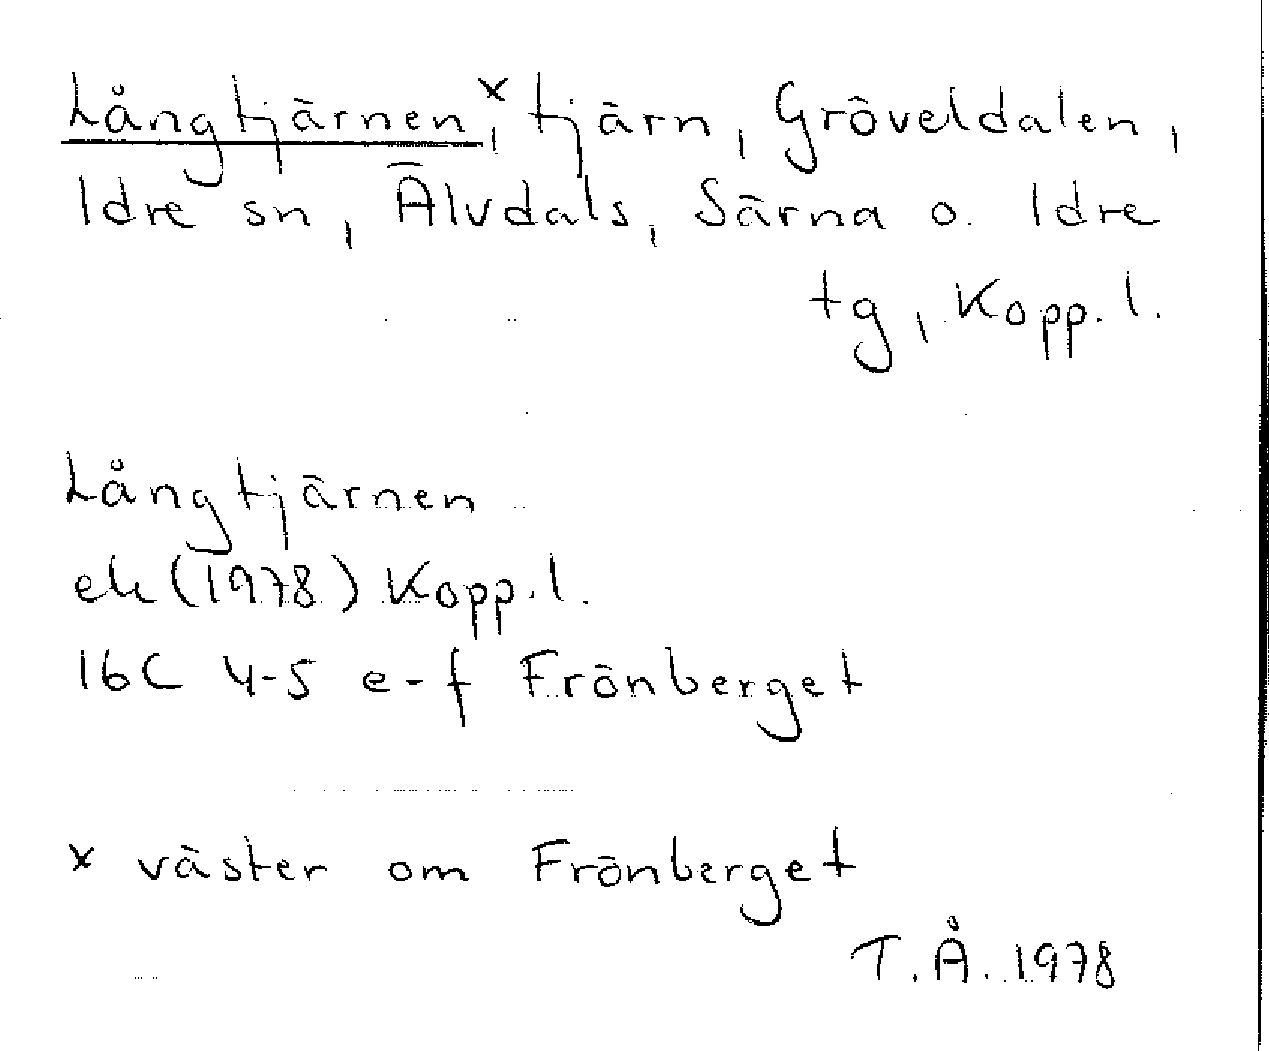 Långtjärnen,x tjärn, Gröveldalen,
Idre sn, Älvdals, Särna o. Idre
tg, Kopp. l.
Långtjärnen
ek (1978) Kopp. l.
16C 4-5 e-f Frönberget
x väster om Frönberget
T.Å. 1978